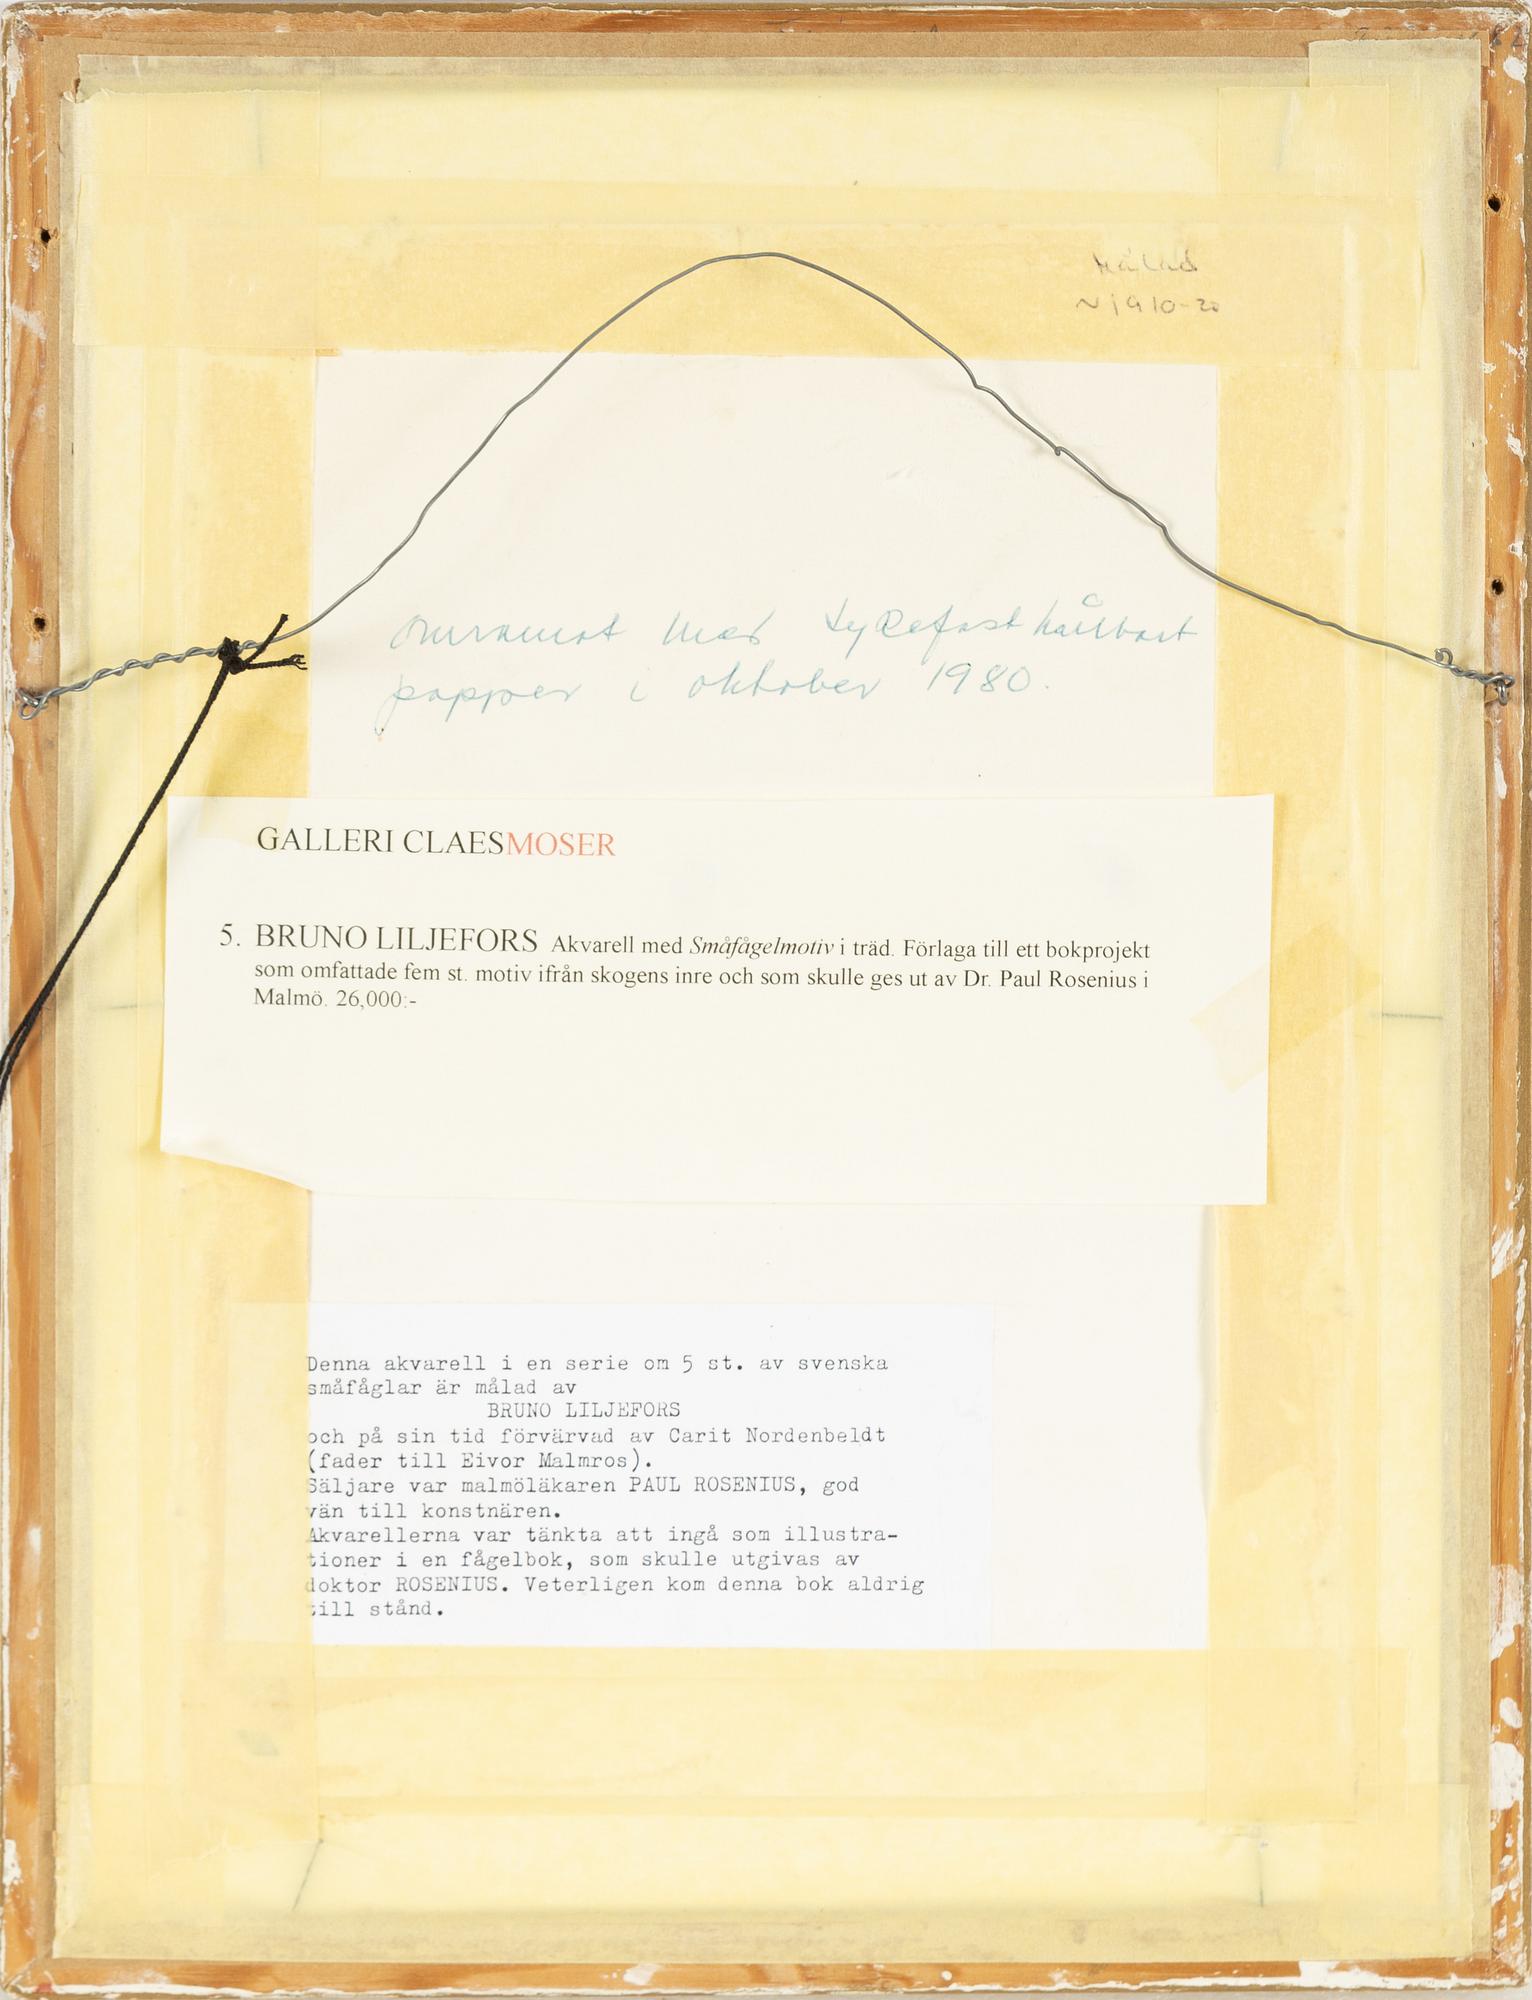 Målad
~ 1910-20
Omramat med syrefast hållbart
papper i oktober 1980.
GALLERI CLAESMOSER
5. BRUNO LILJEFORS Akvarell med Småfågelmotiv i träd. Förlaga till ett bokprojekt
som omfattade fem st. motiv ifrån skogens inre och som skulle ges ut av Dr. Paul Rosenius i
Malmö. 26,000:-
Denna akvarell i en serie om 5 st. av svenska
småfåglar är målad av
BRUNO LILJEFORS
och på sin tid förvärvad av Carit Nordenbeldt
(fader till Eivor Malmros).
Säljare var malmöläkaren PAUL ROSENIUS, god
vän till konstnären.
Akvarellerna var tänkta att ingå som illustra-
tioner i en fågelbok, som skulle utgivas av
doktor ROSENIUS. Veterligen kom denna bok aldrig
till stånd.